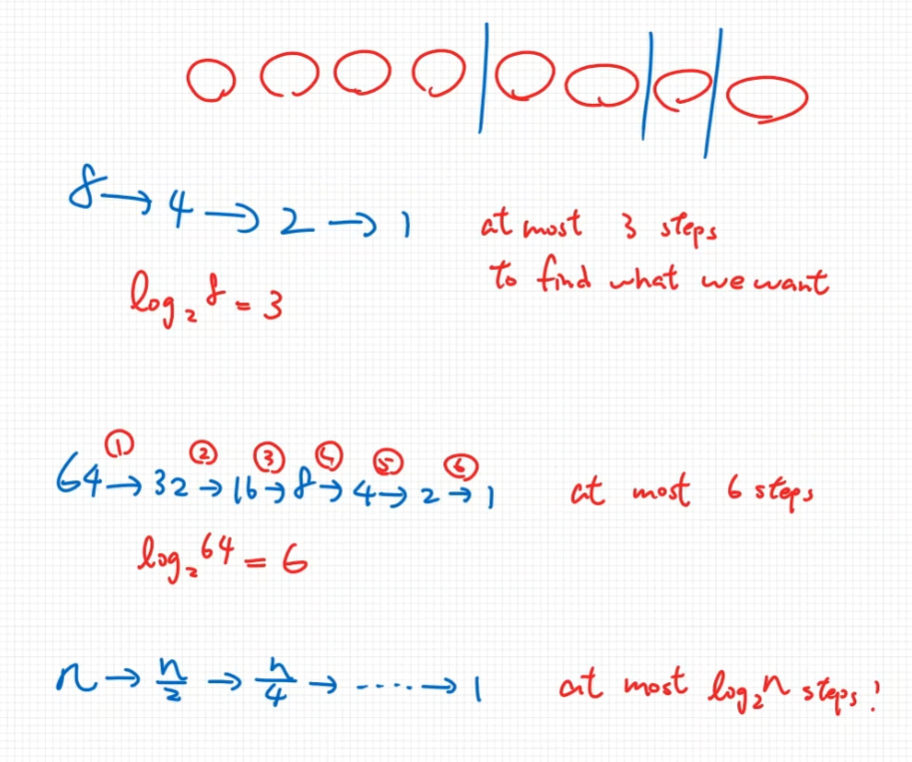 8 → 4 → 2 → 1 at most 3 steps
log₂8 = 3 to find what we want
① ② ③ ④ ⑤ ⑥
64 → 32 → 16 → 8 → 4 → 2 → 1 at most 6 steps
log₂64 = 6
n → n/2 → n/4 → ..... → 1 at most log₂n steps!